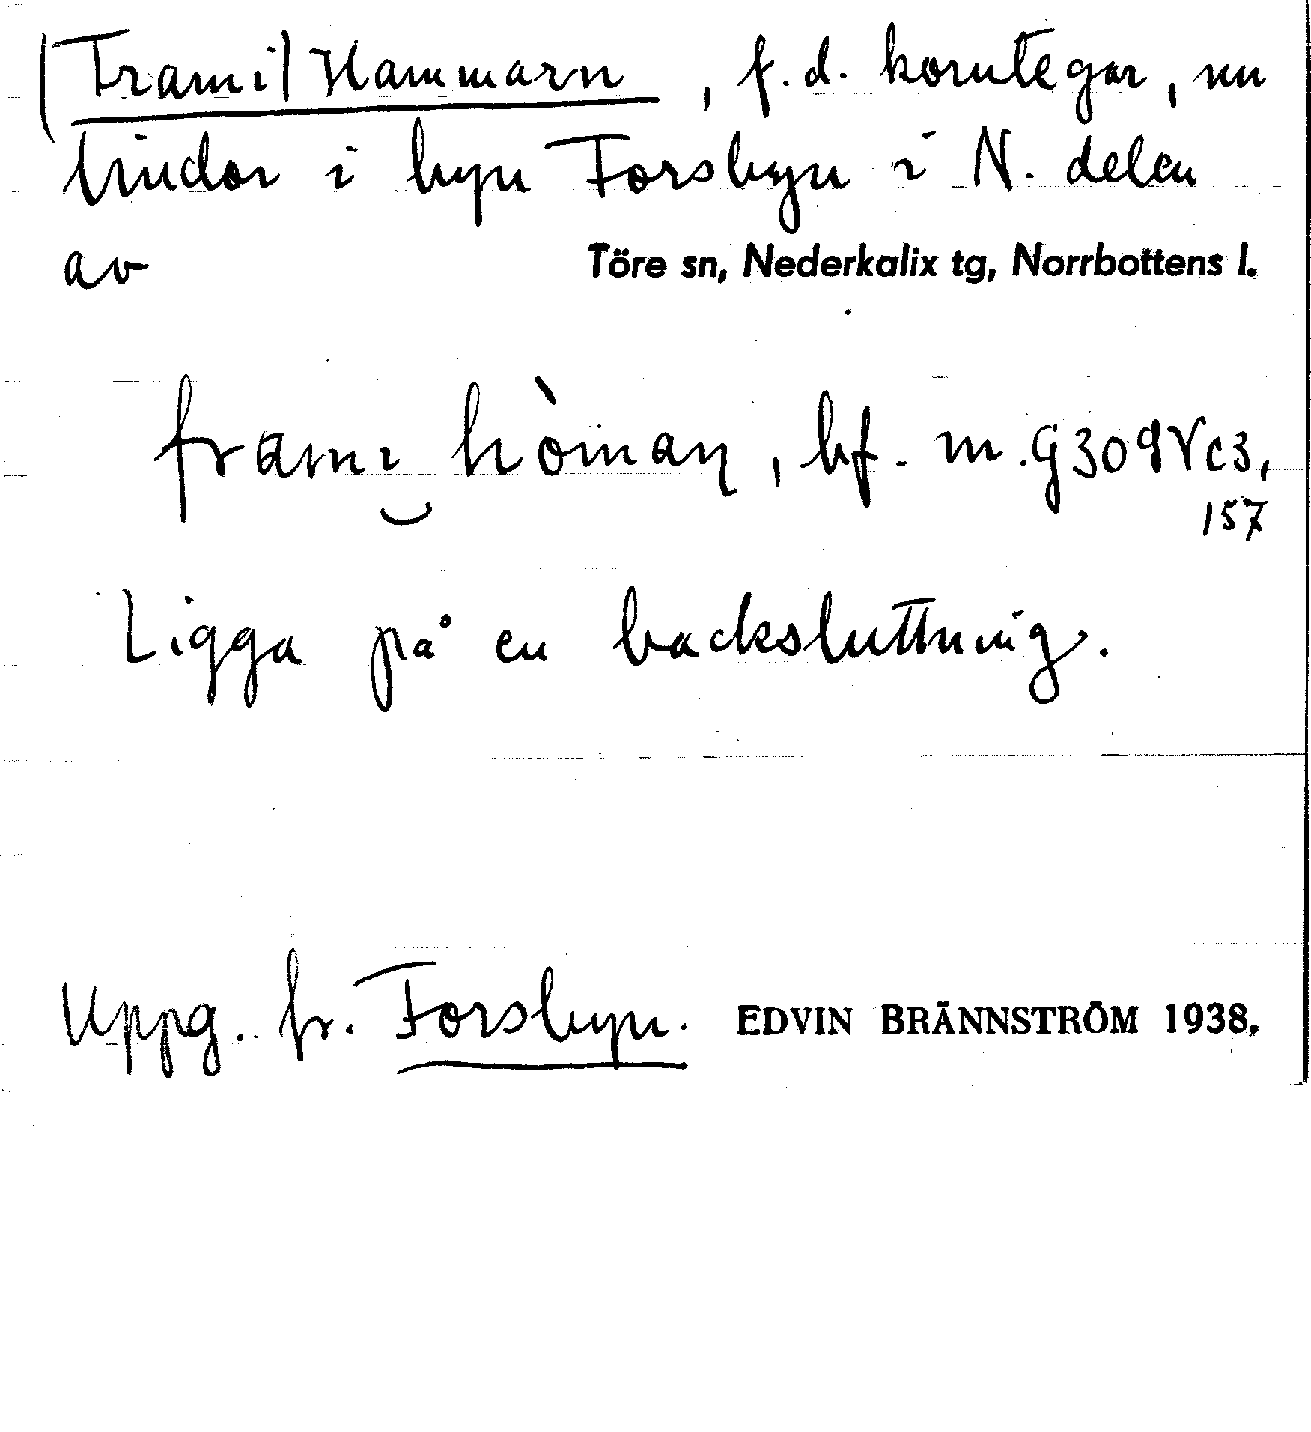 (Frami) Hammarn, f.d. korntegar, nu
lindor i byn Forsbyn i N. delen
av Töre sn, Nederkalix tg, Norrbottens l.
framı hòman, bf. m. G309Vc3,
157
Ligga på en backsluttning.
Uppg. fr. Forsbyn. EDVIN BRÄNNSTRÖM 1938,